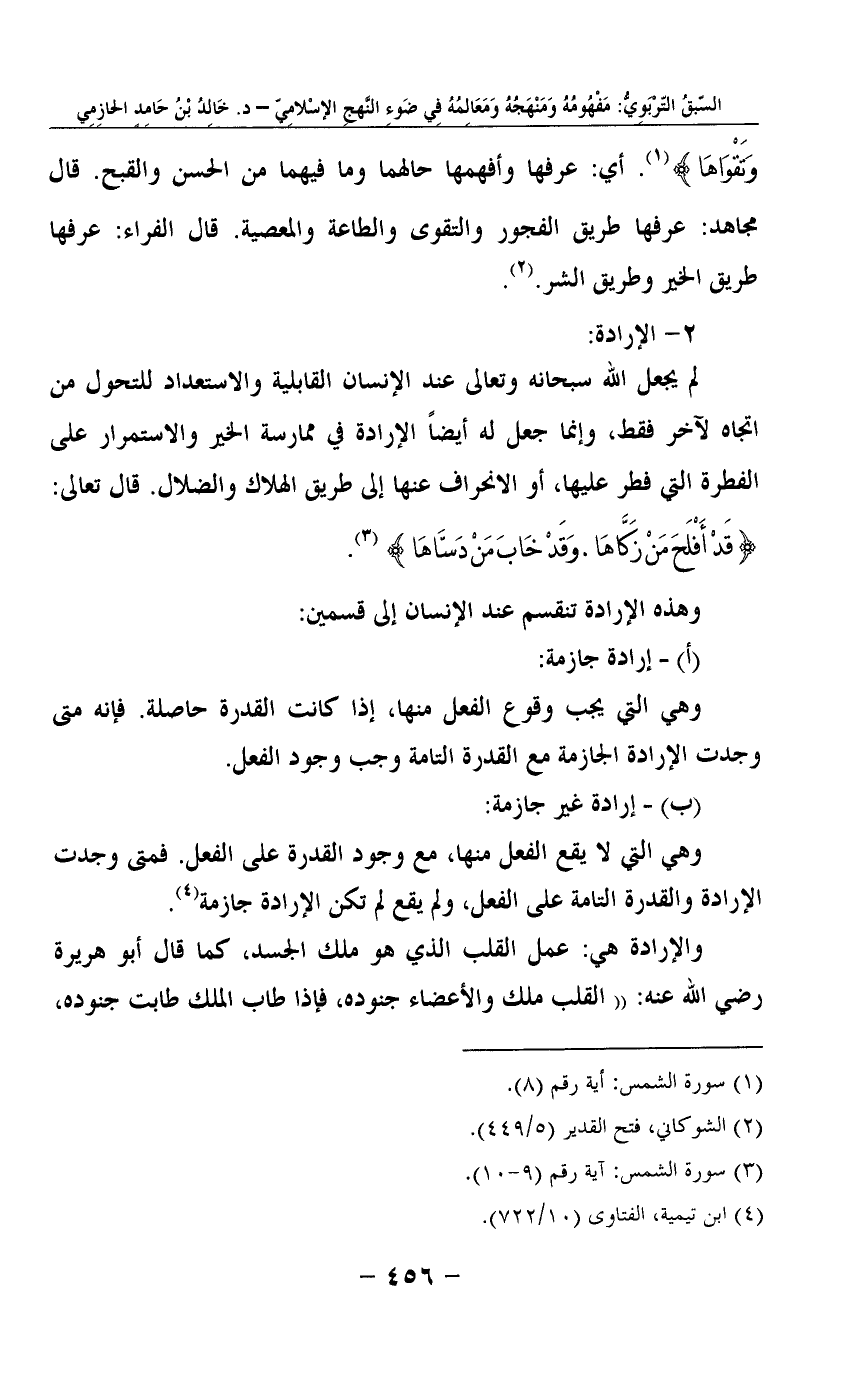 السّبقُ التّرْبَوِيُّ: مَفْهُومُهُ وَمَنْهَجُهُ وَمَعَالِمُهُ فِي ضَوءِ النَّهجِ الإسْلاَمِيّ – د. خَالِدُ بْنُ حَامِدٍ الحَازِمِي
وَتَقْوَاهَا ﴾(١). أي: عرفها وأفهمها حالهما وما فيهما من الحسن والقبح. قال
مجاهد: عرفها طريق الفجور والتقوى والطاعة والمعصية. قال الفراء: عرفها
طريق الخير وطريق الشر.(٢).
٢– الإرادة:
لم يجعل الله سبحانه وتعالى عند الإنسان القابلية والاستعداد للتحول من
اتجاه لآخر فقط، وإنما جعل له أيضاً الإرادة في ممارسة الخير والاستمرار على
الفطرة التي فطر عليها، أو الانحراف عنها إلى طريق الهلاك والضلال. قال تعالى:
﴿ قَدْ أَفْلَحَ مَنْ زَكَّاهَا . وَقَدْ خَابَ مَنْ دَسَّاهَا ﴾ (٣).
وهذه الإرادة تنقسم عند الإنسان إلى قسمين:
(أ) - إرادة جازمة:
وهي التي يجب وقوع الفعل منها، إذا كانت القدرة حاصلة. فإنه متى
وجدت الإرادة الجازمة مع القدرة التامة وجب وجود الفعل.
(ب) - إرادة غير جازمة:
وهي التي لا يقع الفعل منها، مع وجود القدرة على الفعل. فمتى وجدت
الإرادة والقدرة التامة على الفعل، ولم يقع لم تكن الإرادة جازمة(٤).
والإرادة هي: عمل القلب الذي هو ملك الجسد، كما قال أبو هريرة
رضي الله عنه: (( القلب ملك والأعضاء جنوده، فإذا طاب الملك طابت جنوده،
(١) سورة الشمس: أية رقم (٨).
(٢) الشوكاني، فتح القدير (٤٤٩/٥).
(٣) سورة الشمس: آية رقم (٩-١٠).
(٤) ابن تيمية، الفتاوى (٧٢٢/١٠).
– ٤٥٦ –